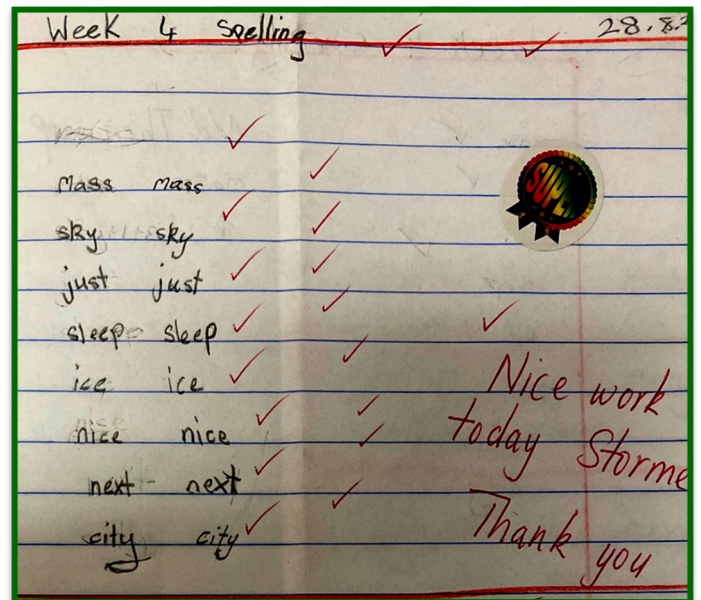 Week 4 Spelling 28.8.
Mass mass
sky sky
just just
sleep sleep
ice ice
nice nice
next next
city city
SUPE
Nice work
today Storme
Thank you